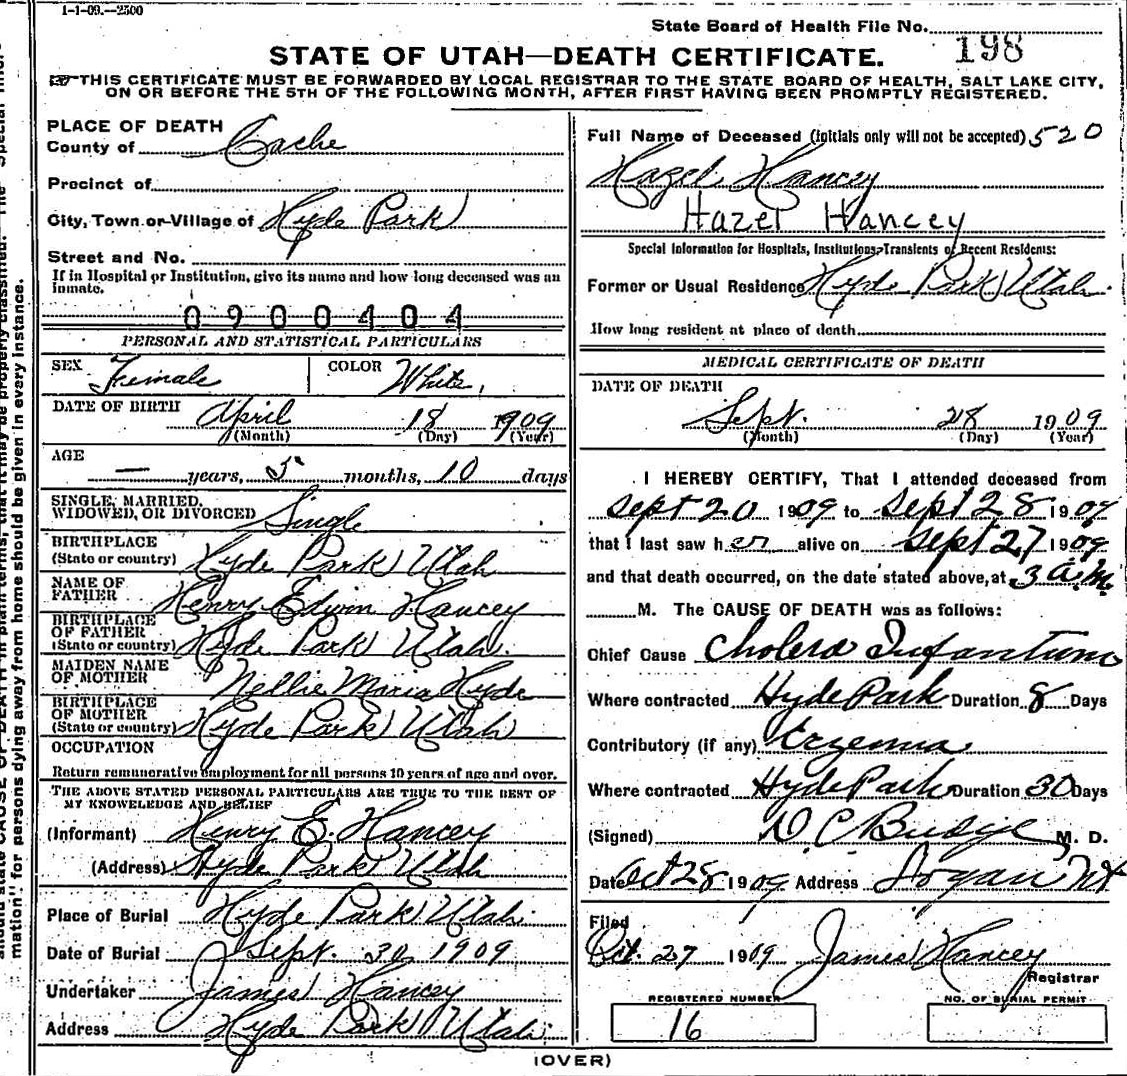 1-1-09.—2500
State Board of Health File No.
198
STATE OF UTAH—DEATH CERTIFICATE.
THIS CERTIFICATE MUST BE FORWARDED BY LOCAL REGISTRAR TO THE STATE BOARD OF HEALTH, SALT LAKE CITY,
ON OR BEFORE THE 5TH OF THE FOLLOWING MONTH, AFTER FIRST HAVING BEEN PROMPTLY REGISTERED.
PLACE OF DEATH
County of Cache
Precinct of
City, Town or Village of Hyde Park
Street and No.
If in Hospital or Institution, give its name and how long deceased was an
inmate.
0900404
PERSONAL AND STATISTICAL PARTICULARS
SEX Female COLOR White,
DATE OF BIRTH April 18 1909
(Month) (Day) (Year)
AGE
— years, 5 months, 10 days
SINGLE, MARRIED,
WIDOWED, OR DIVORCED Single
BIRTHPLACE
(State or country) Hyde Park Utah
NAME OF
FATHER Henry Edwin Hancey
BIRTHPLACE
OF FATHER
(State or country) Hyde Park Utah.
MAIDEN NAME
OF MOTHER Nellie Maria Hyde
BIRTHPLACE
OF MOTHER
(State or country) Hyde Park Utah
OCCUPATION
Return remunerative employment for all persons 10 years of age and over.
THE ABOVE STATED PERSONAL PARTICULARS ARE TRUE TO THE BEST OF
MY KNOWLEDGE AND BELIEF
(Informant) Henry E. Hancey
(Address) Hyde Park Utah
Place of Burial Hyde Park Utah.
Date of Burial Sept. 30, 1909
Undertaker James Hancey
Address Hyde Park Utah.
Full Name of Deceased (initials only will not be accepted) 520
Hazel Hancey
Hazel Hancey
Special Information for Hospitals, Institutions, Transients or Recent Residents:
Former or Usual Residence Hyde Park Utah.
How long resident at place of death
MEDICAL CERTIFICATE OF DEATH
DATE OF DEATH
Sept. 28 1909
(Month) (Day) (Year)
I HEREBY CERTIFY, That I attended deceased from
Sept 20 1909 to Sept 28 1909
that I last saw her alive on Sept 27 1909
and that death occurred, on the date stated above, at 3 a.m.
M. The CAUSE OF DEATH was as follows:
Chief Cause Cholera Infantum
Where contracted Hyde Park Duration 8 Days
Contributory (if any) Eczema
Where contracted Hyde Park Duration 30 Days
(Signed) D C Budge M. D.
Date Oct 28 1909 Address Logan Ut
Filed
Oct. 27 1909 James Hancey
Registrar
REGISTERED NUMBER
16
NO. OF BURIAL PERMIT
(OVER)
mation" for persons dying away from home should be given in every instance.